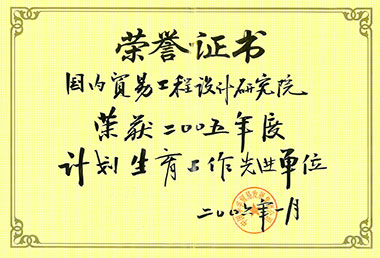 荣誉证书
国内贸易工程设计研究院
荣获二〇〇五年度
计划生育工作先进单位
二〇〇六年一月